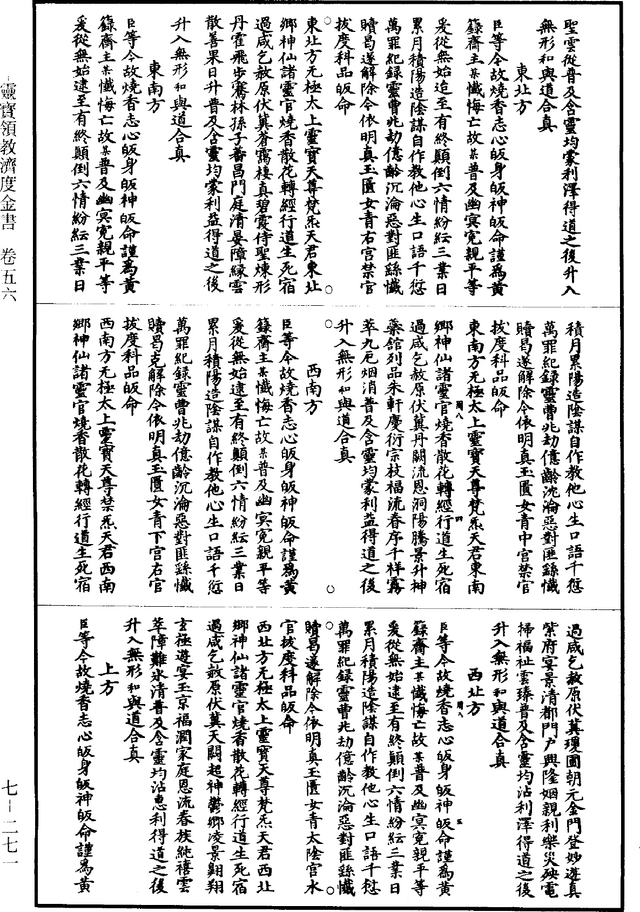 聖雲從普及含靈均蒙利澤得道之後升入
無形和與道合真
東北方
臣等今故燒香志心皈身皈神皈命謹爲黃
籙齋主某懺悔亡故某普及幽冥寃親平等
爰從無始迨至有終顛倒六情紛紜三業日
累月積陽造陰謀自作教他心生口語千愆
萬罪紀錄靈曹兆劫億齡沉淪惡對匪繇懺
贖曷遂解除今依明真玉匱女青右宮禁官
拔度科品皈命
東北方无極太上靈寶天尊梵炁天君東北
鄉神仙諸靈官燒香散花轉經行道生死宿
過咸乞赦原伏冀眷靄棲真碧霞侍聖煉形
丹霍飛步騫林孫子蕃昌門庭清晏障緣雲
散善果日升普及含靈均蒙利益得道之後
升入無形和與道合真
東南方
臣等今故燒香志心皈身皈神皈命謹爲黃
籙齋主某懺悔亡故某普及幽冥寃親平等
爰從無始逮至有終顛倒六情紛紜三業日
積月累陽造陰謀自作教他心生口語千愆
萬罪紀錄靈曹兆劫億齡沉淪惡對匪繇懺
贖曷遂解除今依明真玉匱女青中宮禁官
拔度科品皈命
東南方无極太上靈寶天尊梵炁天君東南
鄉神仙諸靈官燒香散花轉經行道生死宿
過咸乞赦原伏冀丹闕流恩洞陽騰景升神
藥舘列品朱軒慶衍宗枝福流春序千祥霧
萃九厄烟消普及含靈均蒙利益得道之後
升入無形和與道合真
西南方
臣等今故燒香志心皈身皈神皈命謹爲黃
籙齋主某懺悔亡故某普及幽冥寃親平等
爰從無始逮至有終顛倒六情紛紜三業日
累月積陽造陰謀自作教他心生口語千愆
萬罪紀錄靈曹兆劫億齡沉淪惡對匪繇懺
贖曷克解除今依明真玉匱女青下宮右官
拔度科品皈命
西南方无極太上靈寶天尊禁炁天君西南
鄉神仙諸靈官燒香散花轉經行道生死宿
過咸乞赦原伏冀瓊圃朝元金門登妙遊真
紫府宴景清都門戶興隆姻親利樂災殃電
掃福祉雲臻普及含靈均沾利澤得道之後
升入無形和與道合真
西北方
臣等今故燒香志心皈身皈神皈命謹爲黃
籙齋主某懺悔亡故某普及幽冥寃親平等
爰從無始逮至有終顛倒六情紛紜三業日
累月積陽造陰謀自作教他心生口語千愆
萬罪紀錄靈曹兆劫億齡沉淪惡對匪繇懺
贖曷遂解除今依明真玉匱女青太陰官水
官拔度科品皈命
西北方无極太上靈寶天尊梵炁天君西北
鄉神仙諸靈官燒香散花轉經行道生死宿
過咸乞赦原伏冀天關超神鬱鄉凌景翱翔
玄極遊宴玉京福潤家庭恩流春族純禧雲
萃障難氷清普及含靈均沾惠利得道之後
升入無形和與道合真
上方
臣等今故燒香志心皈身皈神皈命謹爲黃
靈寶領教濟度金書 卷五六
七-二七一